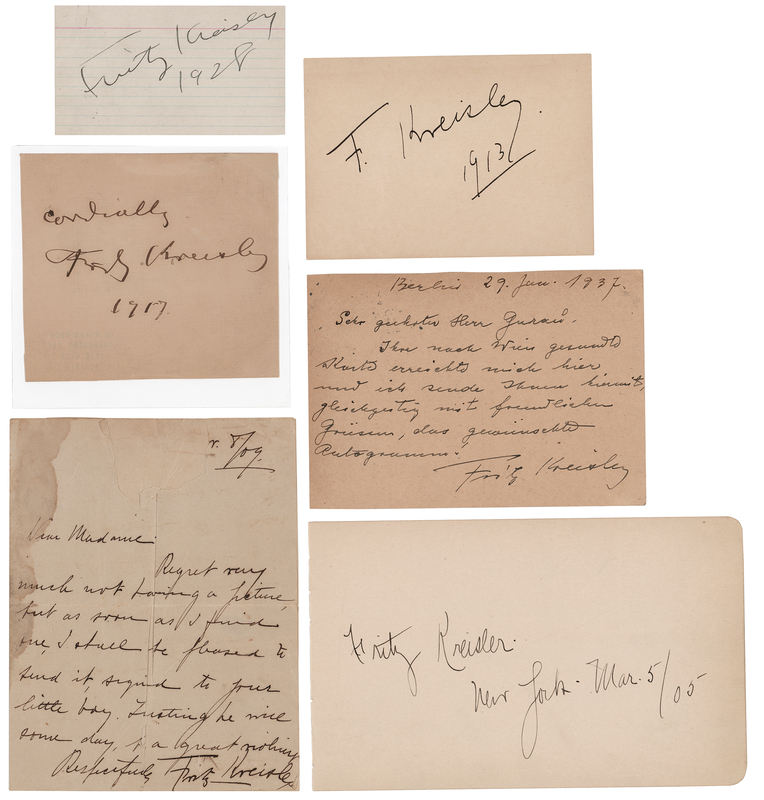 Fritz Kreisler
1928
F. Kreisler.
1913
cordially
Fritz Kreisler
1917.
Berlin 29. Jan. 1937.
Sehr geehrter Herr
Ihre nach Wien gesandte
Karte erreichte mich hier
und ich sende Ihnen hiermit,
gleichzeitig mit freundlichen
Grüssen, das gewünschte
Autogramm!
Fritz Kreisler
/09.
Dear Madame.
Regret very
much not having a picture,
but as soon as I find
one, I shall be pleased to
send it signed to your
little boy. Trusting he will
some day, be a great violinist
Respectfully Fritz Kreisler
Fritz Kreisler.
New York. Mar. 5/05